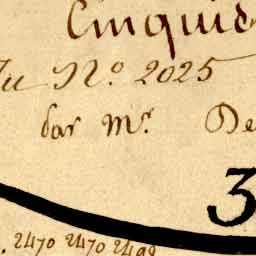 Cinquie
Du No. 2025
par Mr. De
3
. 2470 2470 2499